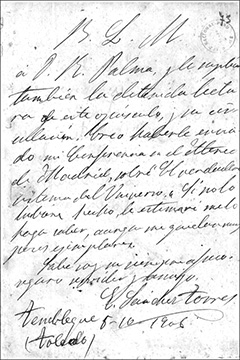 B. L. M
á D. R. Palma, y le suplica
también la detenida lectu
ra de este opúsculo, y su cir
culación. Creo haberle envia
do mi Conferencia en el Ateneo
de Madrid, sobre El verdadero
sistema del Universo. Si no lo
hubiera hecho, le estimaré me lo
haga saber, aunque me quedan muy
pocos ejemplares.
Sabe soy su siempre afmo.
seguro servidor y amigo.
V. Sánchez Torres
Tembleque 5-10 1906
(Toledo)